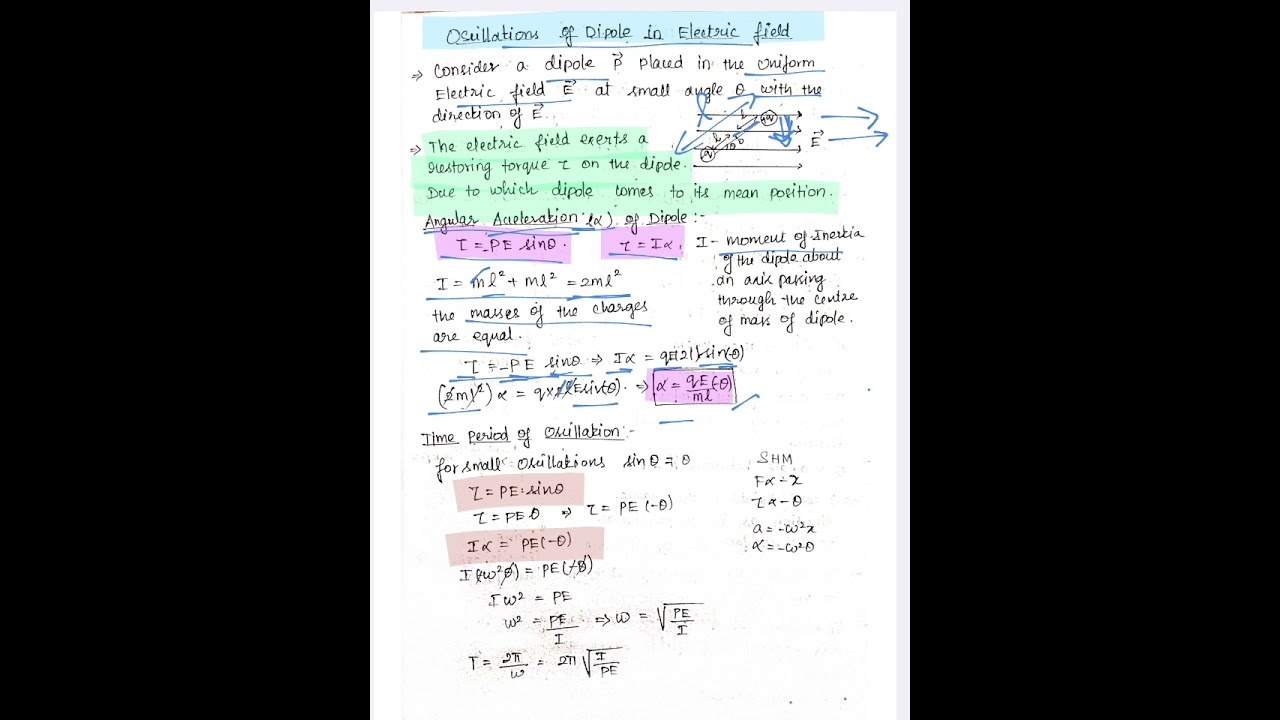 Oscillations of Dipole in Electric field
⇒ Consider a dipole P⃗ placed in the uniform
Electric field E⃗ at small angle θ with the
direction of E⃗.
l
l
+q
θ
l
-q
E⃗
⇒ The electric field exerts a
restoring torque τ on the dipole.
Due to which dipole comes to its mean position.
Angular Acceleration (α) of Dipole :-
τ = -PE sinθ.
τ = Iα.
I - moment of Inertia
of the dipole about
an axis passing
through the centre
of mass of dipole.
I = ml² + ml² = 2ml²
the masses of the charges
are equal.
τ = -PE sinθ ⇒ Iα = qE(2l) sin(-θ)
(2ml²) α = q×2l E sin(-θ). ⇒ α = qE/ml (-θ)
Time Period of Oscillation :-
for small oscillations sinθ = θ
τ = PE sinθ
τ = PE θ ⇒ τ = PE (-θ)
Iα = PE(-θ)
I(-ω²θ) = PE(-θ)
Iω² = PE
ω² = PE/I ⇒ ω = √(PE/I)
T = 2π/ω = 2π √(I/PE)
SHM
F α -x
τ α -θ
a = -ω²x
α = -ω²θ